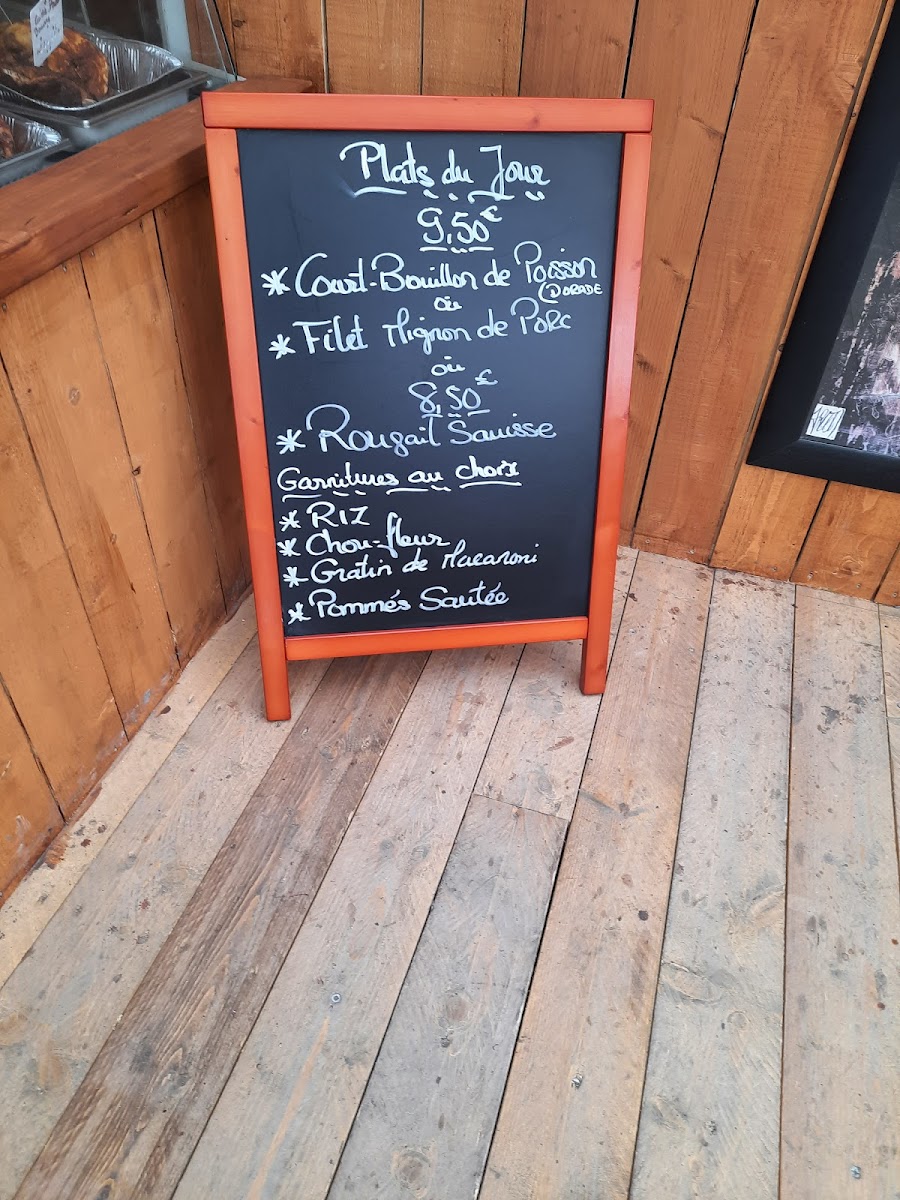 Plats du Jour
9,50€
* Court-Bouillon de Poisson
(DORADE
ou
* Filet Mignon de Porc
ou
8,50€
* Rougail Sauisse
Garnitures au choix
* RIZ
* Chou-fleur
* Gratin de Macaroni
* Pommés Sautée